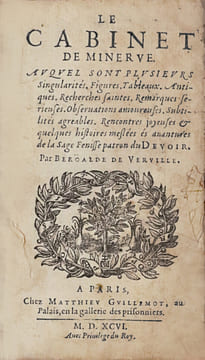 LE
CABINET
DE MINERVE.
AVQVEL SONT PLVSIEVRS
Singularités, Figures, Tableaux, Anti-
ques, Recherches saintes, Remarques se-
rieuses, Obseruations amoureuses, Subti-
lités agreables, Rencontres joyeuses &
quelques histoires meslées és auantures
de la Sage Fenisse patron du DEVOIR.
Par BEROALDE DE VERVILLE.
A PARIS,
Chez MATTHIEV GVILLEMOT, au
Palais, en la gallerie des prisonniers.
M. D. XCVI.
Auec Priuilege du Roy.